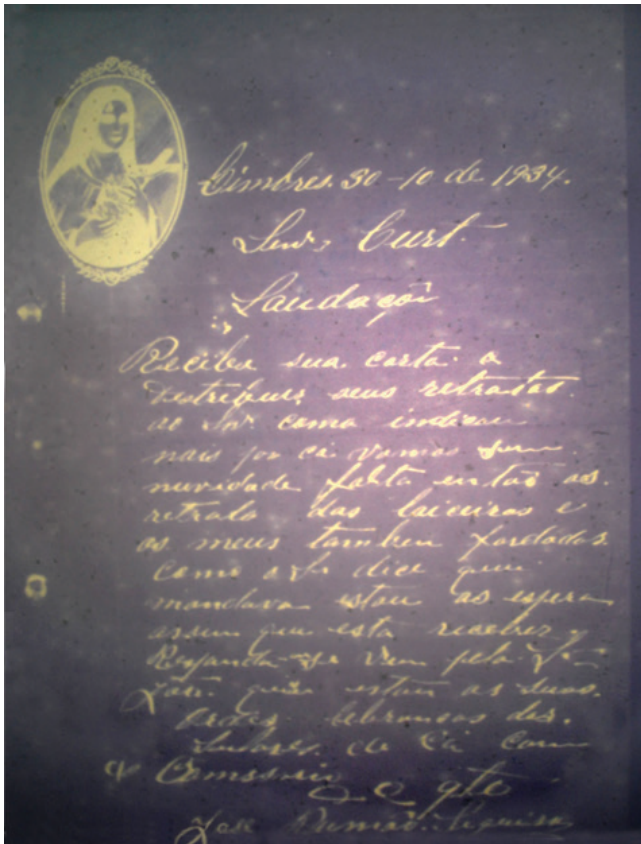 Cimbres. 30-10 de 1934.
Snr. Curt.
Saudaçõi
Recibe sua carta. a
destribues seus retratos.
ao Snr como indicou
mais por cá vamos sem
nuvidade falta entaõ as.
retrato das laiciras e
os meus tambem fardados.
como o Sr dice que
mandava estou as espera
assim que esta receber
Responda-se vem pela
que estou as suas.
ordes. lebransas dos.
de cá com
José Siqueira